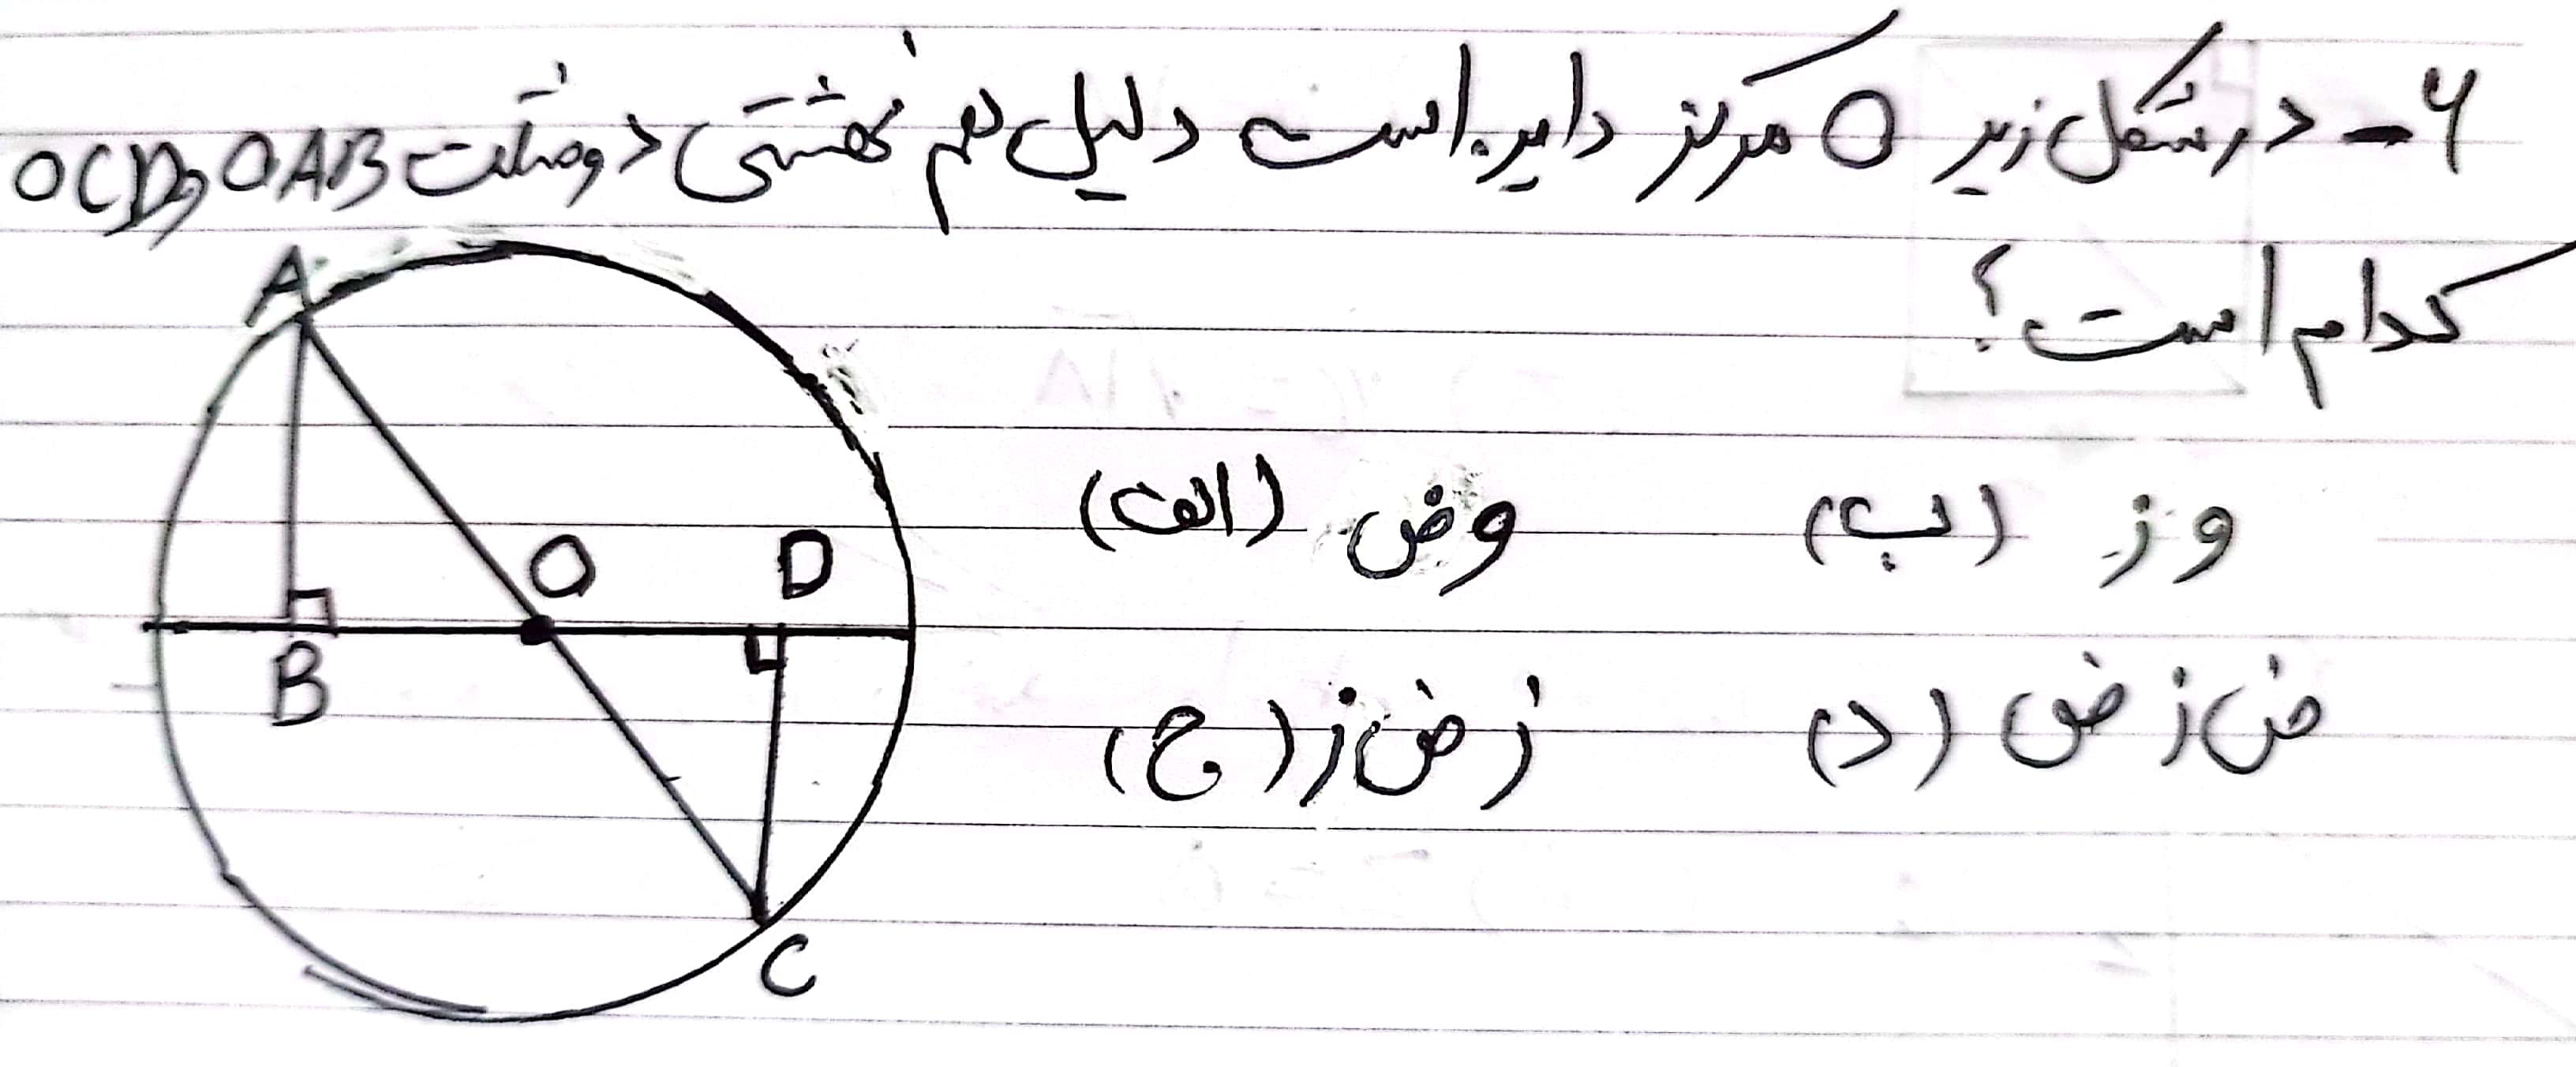 ۶- در شکل زیر O مرکز دایره است دلیل هم نهشتی دو مثلث OAB و OCD
کدام است؟
الف) وض
ب) وز
ج) زض ز
د) ض ز ض
A
O
D
B
C